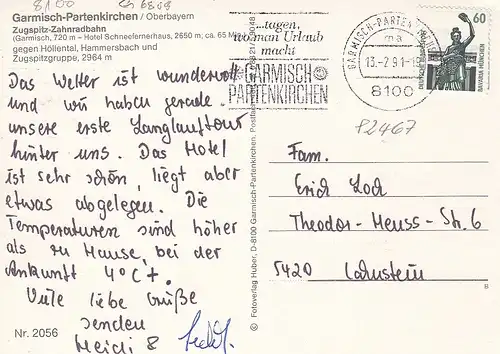 8100
Garmisch-Partenkirchen / Oberbayern
Zugspitz-Zahnradbahn
(Garmisch, 720 m – Hotel Schneefernerhaus, 2650 m, ca. 65 Min.)
gegen Höllental, Hammersbach und
Zugspitzgruppe, 2964 m
Das Wetter ist wundervoll
und wir haben gerade
unsere erste Langlauftour
hinter uns. Das Hotel
ist sehr schön, liegt aber
etwas abgelegen. Die
Temperaturen sind höher
als zu Hause, bei der
Ankunft 4°C+.
Viele liebe Grüße
senden
Heidi &
Nr. 2056
© Fotoverlag Huber, D-8100 Garmisch-Partenkirchen
tagen,
wo man Urlaub
macht
GARMISCH
PARTENKIRCHEN
GARMISCH-PARTENKIRCHEN
ma
13.-2.91-19
8100
60
BAVARIA MÜNCHEN
P2467
Fam.
Erich Loch
Theodor-Heuss-Str. 6
5420 Lahnstein
B